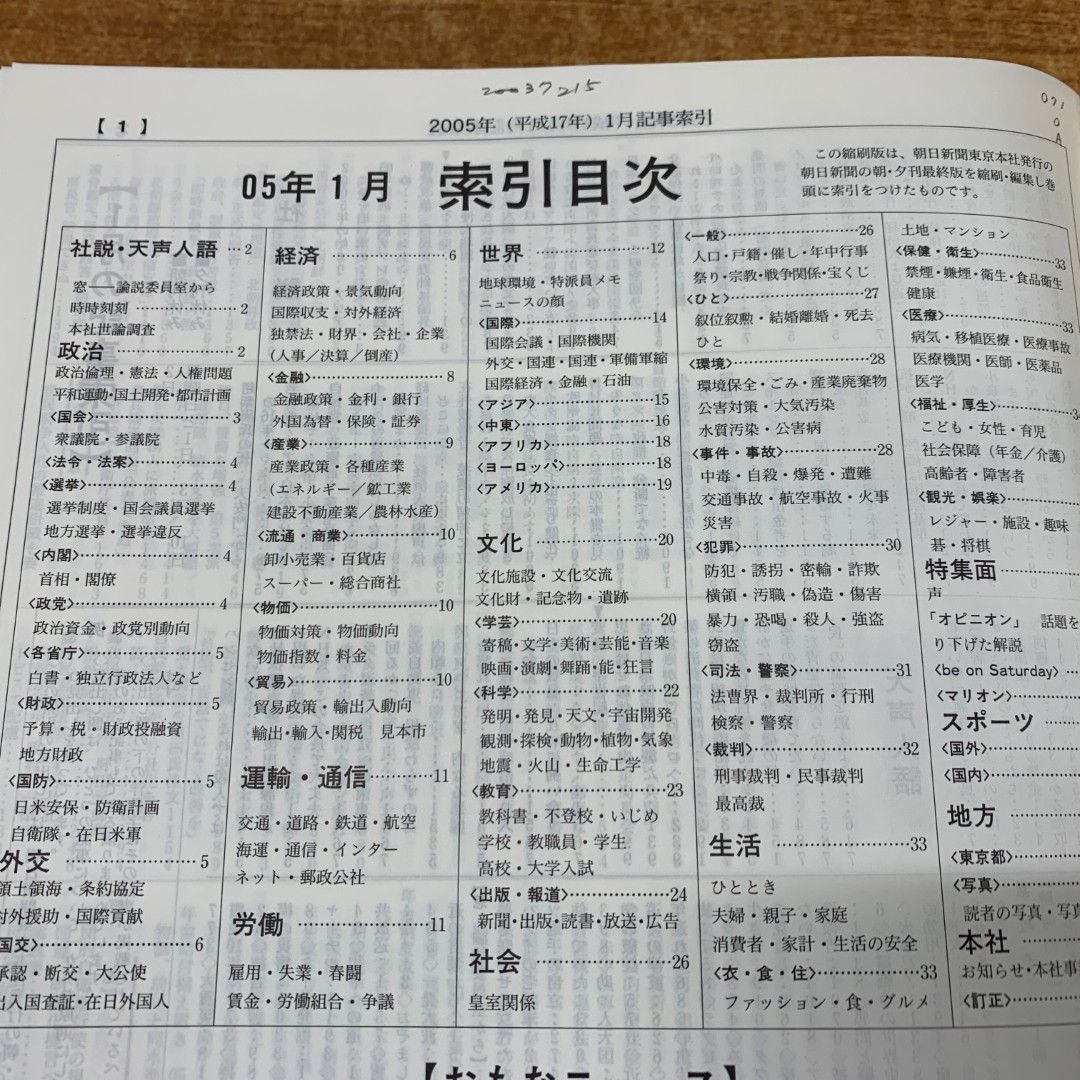 20037215
071
0
A
【1】
2005年（平成17年）1月記事索引
05年1月 索引目次
この縮刷版は、朝日新聞東京本社発行の
朝日新聞の朝・夕刊最終版を縮刷・編集し巻
頭に索引をつけたものです。
社説・天声人語…2
窓――論説委員室から
時時刻刻……………2
本社世論調査
政治……………2
政治倫理・憲法・人権問題
平和運動・国土開発・都市計画
〈国会〉……………3
衆議院・参議院
〈法令・法案〉……………4
〈選挙〉……………4
選挙制度・国会議員選挙
地方選挙・選挙違反
〈内閣〉……………4
首相・閣僚
〈政党〉……………4
政治資金・政党別動向
〈各省庁〉……………5
白書・独立行政法人など
〈財政〉……………5
予算・税・財政投融資
地方財政
〈国防〉……………5
日米安保・防衛計画
自衛隊・在日米軍
外交……………5
領土領海・条約協定
対外援助・国際貢献
国交〉……………6
承認・断交・大公使
出入国査証・在日外国人
経済……………6
経済政策・景気動向
国際収支・対外経済
独禁法・財界・会社・企業
（人事／決算／倒産）
〈金融〉……………8
金融政策・金利・銀行
外国為替・保険・証券
〈産業〉……………9
産業政策・各種産業
（エネルギー／鉱工業
建設不動産業／農林水産）
〈流通・商業〉……………10
卸小売業・百貨店
スーパー・総合商社
〈物価〉……………10
物価対策・物価動向
物価指数・料金
〈貿易〉……………10
貿易政策・輸出入動向
輸出・輸入・関税　見本市
運輸・通信……………11
交通・道路・鉄道・航空
海運・通信・インター
ネット・郵政公社
労働……………11
雇用・失業・春闘
賃金・労働組合・争議
世界……………12
地球環境・特派員メモ
ニュースの顔
〈国際〉……………14
国際会議・国際機関
外交・国連・国連・軍備軍縮
国際経済・金融・石油
〈アジア〉……………15
〈中東〉……………16
〈アフリカ〉……………18
〈ヨーロッパ〉……………18
〈アメリカ〉……………19
文化……………20
文化施設・文化交流
文化財・記念物・遺跡
〈学芸〉……………20
寄稿・文学・美術・芸能・音楽
映画・演劇・舞踊・能・狂言
〈科学〉……………22
発明・発見・天文・宇宙開発
観測・探検・動物・植物・気象
地震・火山・生命工学
〈教育〉……………23
教科書・不登校・いじめ
学校・教職員・学生
高校・大学入試
〈出版・報道〉……………24
新聞・出版・読書・放送・広告
社会……………26
皇室関係
〈一般〉……………26
人口・戸籍・催し・年中行事
祭り・宗教・戦争関係・宝くじ
〈ひと〉……………27
叙位叙勲・結婚離婚・死去
ひと
〈環境〉……………28
環境保全・ごみ・産業廃棄物
公害対策・大気汚染
水質汚染・公害病
〈事件・事故〉……………28
中毒・自殺・爆発・遭難
交通事故・航空事故・火事
災害
〈犯罪〉……………30
防犯・誘拐・密輸・詐欺
横領・汚職・偽造・傷害
暴力・恐喝・殺人・強盗
窃盗
〈司法・警察〉……………31
法曹界・裁判所・行刑
検察・警察
〈裁判〉……………32
刑事裁判・民事裁判
最高裁
生活……………33
ひととき
夫婦・親子・家庭
消費者・家計・生活の安全
〈衣・食・住〉……………33
ファッション・食・グルメ
土地・マンション
〈保健・衛生〉……………33
禁煙・嫌煙・衛生・食品衛生
健康
〈医療〉……………33
病気・移植医療・医療事故
医療機関・医師・医薬品
医学
〈福祉・厚生〉……………3
こども・女性・育児
社会保障（年金／介護）
高齢者・障害者
〈観光・娯楽〉……………
レジャー・施設・趣味
碁・将棋
特集面……………
声
「オピニオン」　話題を
り下げた解説
〈be on Saturday〉…
〈マリオン〉……………
スポーツ……………
〈国外〉……………
〈国内〉……………
地方……………
〈東京都〉……………
〈写真〉……………
読者の写真・写
本社……………
お知らせ・本社事
〈訂正〉……………